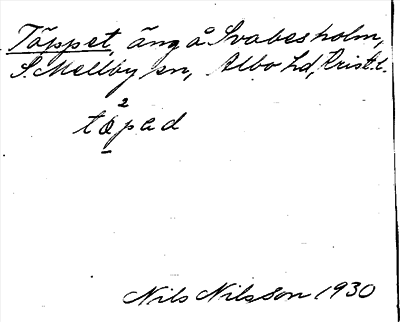 Täppet, äng å Svabesholm,
S. Mellby sn, Albo hd, Krist. l.
2
täpad
Nils Nilsson 1930